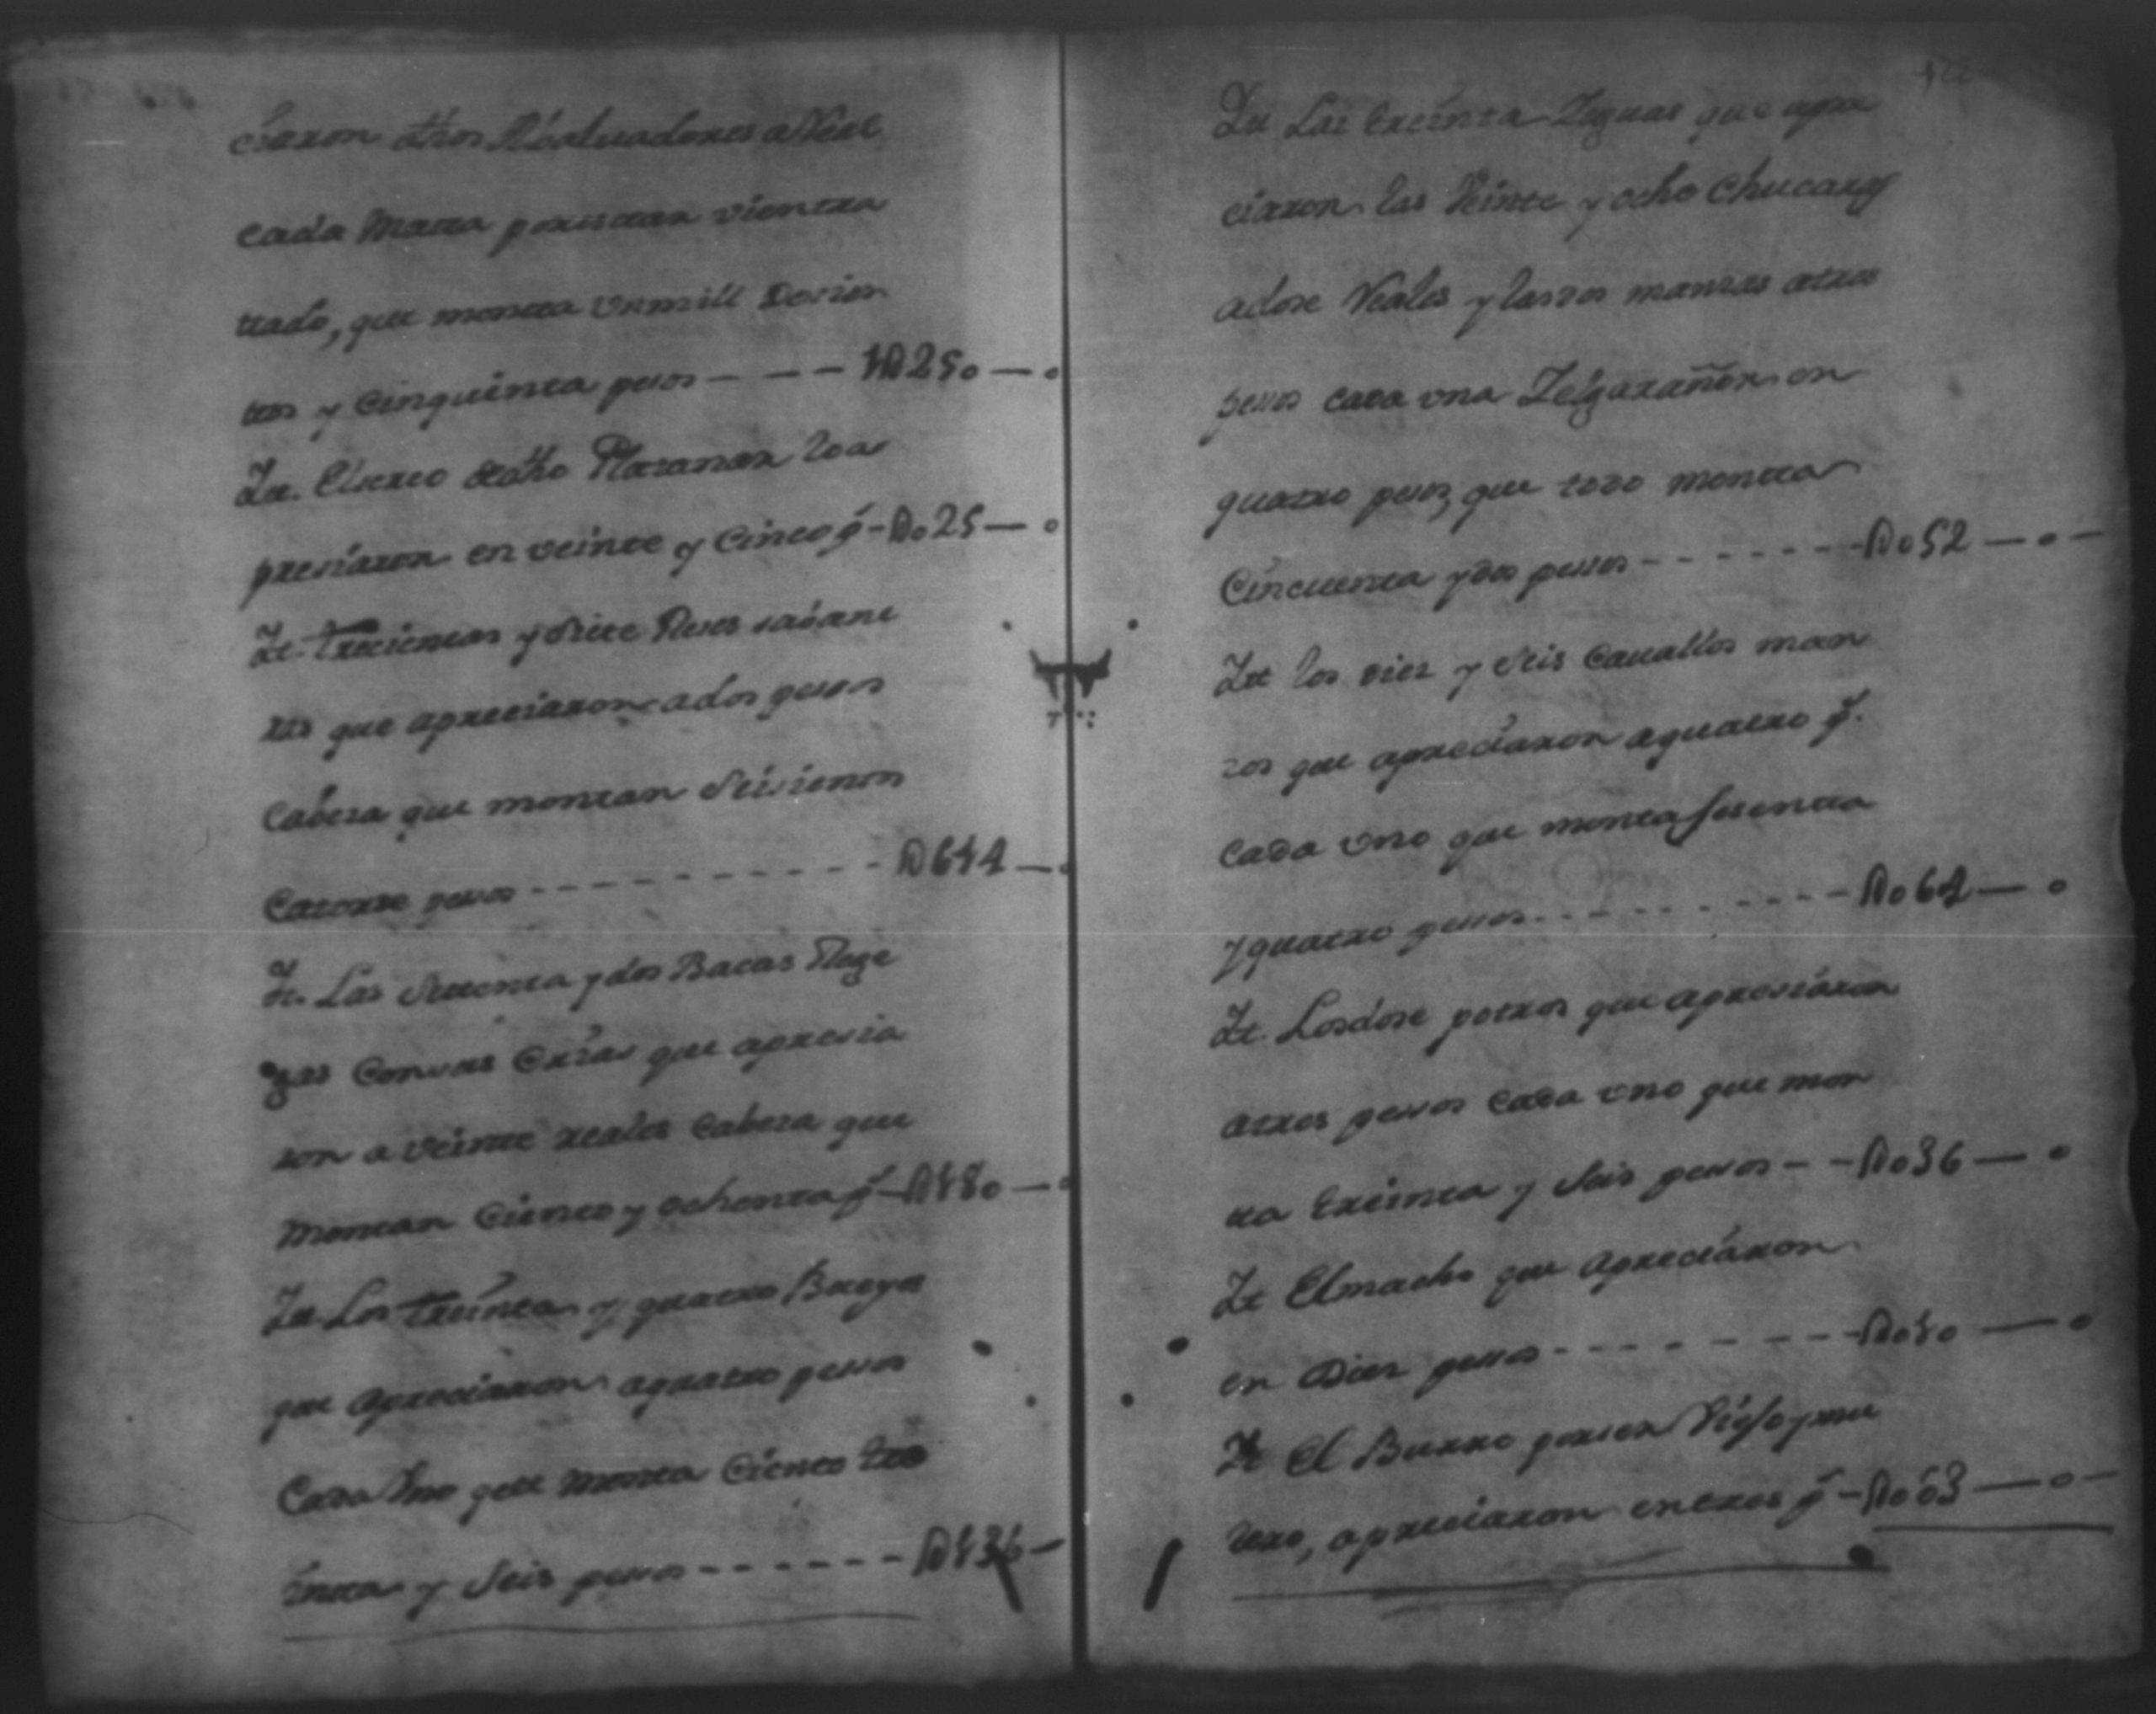 ciaron dhos Abaluadores a Real
cada Matta por estar vien tra
ttado, que montta Un mill Docien
ttos y Cinquenta pesos - - - 1U250 — o
Itt. El serco de dho Platanar lo a
presiaron en veinte y Cinco ps - Uo25 — o
It. Trecientas y siete Reses sabane
ras que apreciaron a dos pessos
Cabeza que montan Seiscientos
Catorse pesos - - - - - - - - - - U614 — o
It. Las Settenta y dos Bacas Rege
gas Con sus Crias que apresia
ron a veinte reales Cabeza que
montan Ciento y ochenta ps - U180 — o
Itt. Los treinta y quatro Bueyes
que Apreciaron a quatro pessos
Cada Uno que montta Ciento tre
intta y Seis pesos - - - - - - U136 —
Itt Las treinta Yeguas que apre
ciaron las Veinte y ocho Chucaras
a dose Reales y las dos mansas a tres
pesos cada una Y el garañon en
quatro pesos, que todo montta
Cincuenta y dos pessos - - - - - - Uo52 — o —
Itt los diez y Seis Cauallos man
sos que apreciaron a quatro ps.
Cada uno que monta sesentta
y quatro pessos - - - - - - - - Uo64 — o
It. Los dose potros que apresiaron
a tres pessos Cada uno que mon
tta treinta y Seis pessos - - Uo36 — o
It El macho que Apreciaron
en Diez pessos - - - - - - - Uo10 — o
It El Burro por ser Viejo y mu
lero, apreciaron en tres ps - Uoo3 — o —